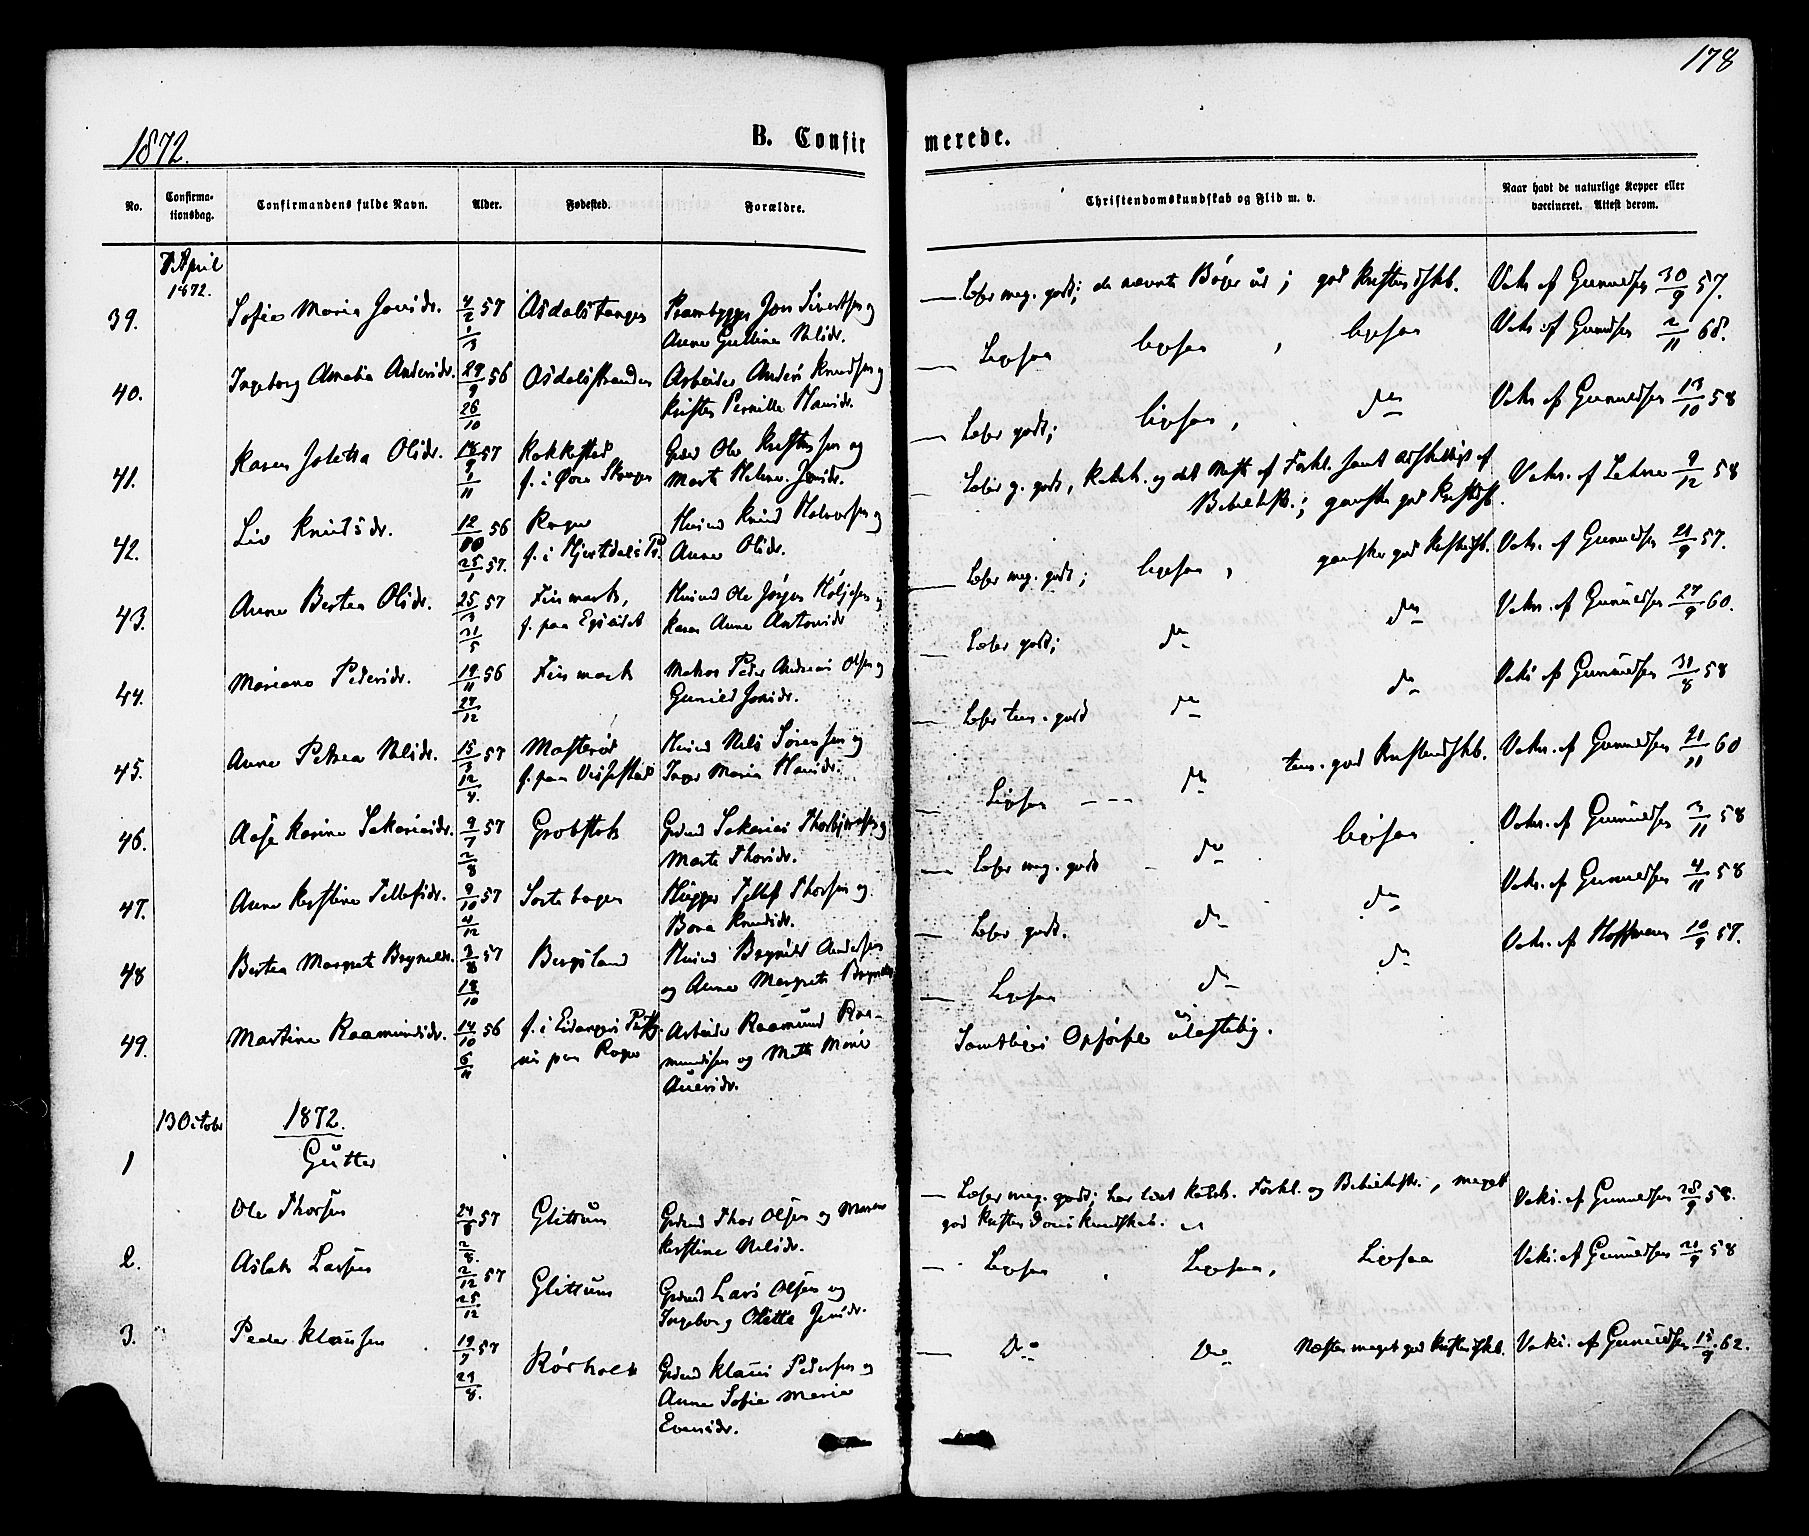 178
1872.
B. Confirmerede.
No.
Confirmationsdag.
Confirmandens fulde Navn.
Alder.
Fødested.
Forældre.
Christendomskundskab og Flid m. v.
Naar havt de naturlige Kopper eller vaccineret. Attest derom.
7 April 1872.
39. Sofie Maria Jonsdr. 4/2 57 1/3 Asdalstangen
Anne Gulline Nilsdr.
— Læser meg. godt; de nævnte Bøger ud; god Kristendskb. Vaks. af Gunuldsen 30/9 57.
40. Ingeborg Amalia Andersdr. 29/9 56 26/10 Asdalsstranden Arbeider Anders Knudsen og
Kristen Pernille Hansdr.
— Ligesaa ligesaa, ligesaa Vaks. af Gunuldsen 2/11 68.
41. Karen Joletta Olsdr. 18/9 57 1/11 Kokkestad
f. i Øvre Skagen
Grdmd Ole Kristensen og
Marte Helene Jensdr.
— Læser godt; ligesaa, do Vaks. af Gunuldsen 13/10 58
42. Liv Knutsdr. 12/10 56 25/1 57. Roger
f. i Hjertdals Pr.
Husmd Knud Halvorsen og
Anne Olsdr.
— Læser g. godt, Katek. og det Meste af Forkl. samt adskilligt af
Bibelhist.; ganske god Kristdsk.
Vaks. af Lehne 9/12 58
43. Anne Bertea Olsdr. 25/3 57 31/5 Finmark,
f. paa Egseidet
Husmd Ole Jørgen Høljesen og
Karen Anne Antonsdr
— Læser meg. godt; ligesaa, ganske god Kristdsk. Vaks. af Gunuldsen 21/9 57.
44. Mariane Pedersdr. 19/11 56 27/12 Finmark Matros Peder Andreas Olsen og
Gunild Jonsdr.
— Læser godt; do do Vaks. af Gunuldsen 27/9 60.
45. Anne Petrea Nilsdr. 15/3 57 12/4. Masterød
f. paa Vissestad
Husmd Nils Sørensen og
Inger Maria Hansdr.
— Læser tem. godt do do Vaks af Gunuldsen 31/8 58
46. Aase Karine Sakariasdr. 9/7 57 2/8 Grobstok Grdmd Sakarias Thorbjørnsen og
Marte Thorsdr.
— Ligesaa - - - do tem. god Kristendskb. Vaks. af Gunuldsen 21/11 60
47. Anne Kirstine Tellefsdr. 9/10 57 4/12 Sortebogen Tellef Thorsen og
Bora Knudsdr.
— Læser meg. godt - do ligesaa Vaks. af Gunuldsen 3/11 58
48 Bertea Margrete Brynildsdr. 3/8 57 18/10 Bergsland Husmd Brynild Andersen
og Anne Margrete Brynildsdr
— Læser godt. do do Vaks. af Gunuldsen 4/11 58
49. Martine Raamundsdr. 14/10 56 6/11 f. i Eidanger Præstg.
nu paa Roger
Arbeider Raamund Raamundsen og Mette Marie
Auensdr.
— Ligesaa do do Vaks. af Hoffmann 10/9 57.
Samtliges Opførsel ulastelig.
13 October 1872.
Gutter
1 Ole Thorsen 24/6 57 2/8. Glittum Grdmd Thor Olsen og Maren
Kirstine Nilsdr.
— Læser meg. godt; har lært Katek. Forkl. og Bibelhistr., meget
god Kristendomskundskab.
Vaks. af Gunuldsen 28/9 58.
2. Aslak Larsen 2/12 57 25/12 Glittum Grdmd Lars Olsen og
Ingeborg Olette Jensdr.
— Ligesaa, Ligesaa, Ligesaa Vaks. af Gunuldsen 21/9 58
3. Peder Klausen 19/7 57 29/8. Rørholt Grdmd Klaus Pedersen og
Anne Sofie Marie
Evensdr.
— Do Do Næsten meget god Kristdskb. Vaks. af Gunuldsen 15/9 62.